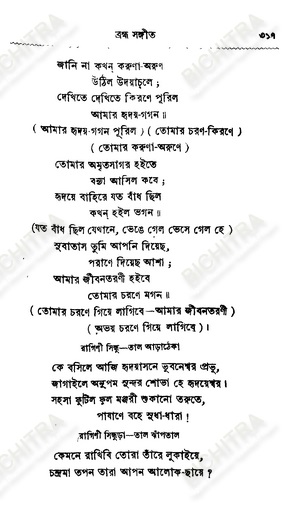 ব্রহ্ম সঙ্গীত ৩১৭
জানি না কখন করুণা-অরুণ
উঠিল উদয়াচলে;
দেখিতে দেখিতে কিরণে পূরিল
আমার হৃদয়-গগন॥
(আমার হৃদয়-গগন পূরিল) (তোমার চরণ-কিরণে)
(তোমার করুণা-অরুণে)
তোমার অমৃতসাগর হইতে
বন্যা আসিল কবে;
হৃদয়ে বাহিরে যত বাঁধ ছিল
কখন হইল ভগন॥
(যত বাঁধ ছিল যেখানে, ভেঙে গেল ভেসে গেল হে)
সুবাতাস তুমি আপনি দিয়েছ,
পরাণে দিয়েছ আশা;
আমার জীবনতরণী হইবে
তোমার চরণে মগন॥
(তোমার চরণে গিয়ে লাগিবে—আমার জীবনতরণী)
(অভয় চরণে গিয়ে লাগিবে)।
রাগিণী সিন্ধু—তাল আড়াঠেকা
কে বসিলে আজি হৃদয়াসনে ভুবনেশ্বর প্রভু,
জাগাইলে অনুপম সুন্দর শোভা হে হৃদয়েশ্বর।
সহসা ফুটিল ফুল মঞ্জরী শুকানো তরুতে,
পাষাণে বহে সুধা-ধারা!
রাগিণী সিন্ধুড়া—তাল ঝাঁপতাল
কেমনে রাখিবি তোরা তাঁরে লুকাইয়ে,
চন্দ্রমা তপন তারা আপন আলোক-ছায়ে?
BICHITRA